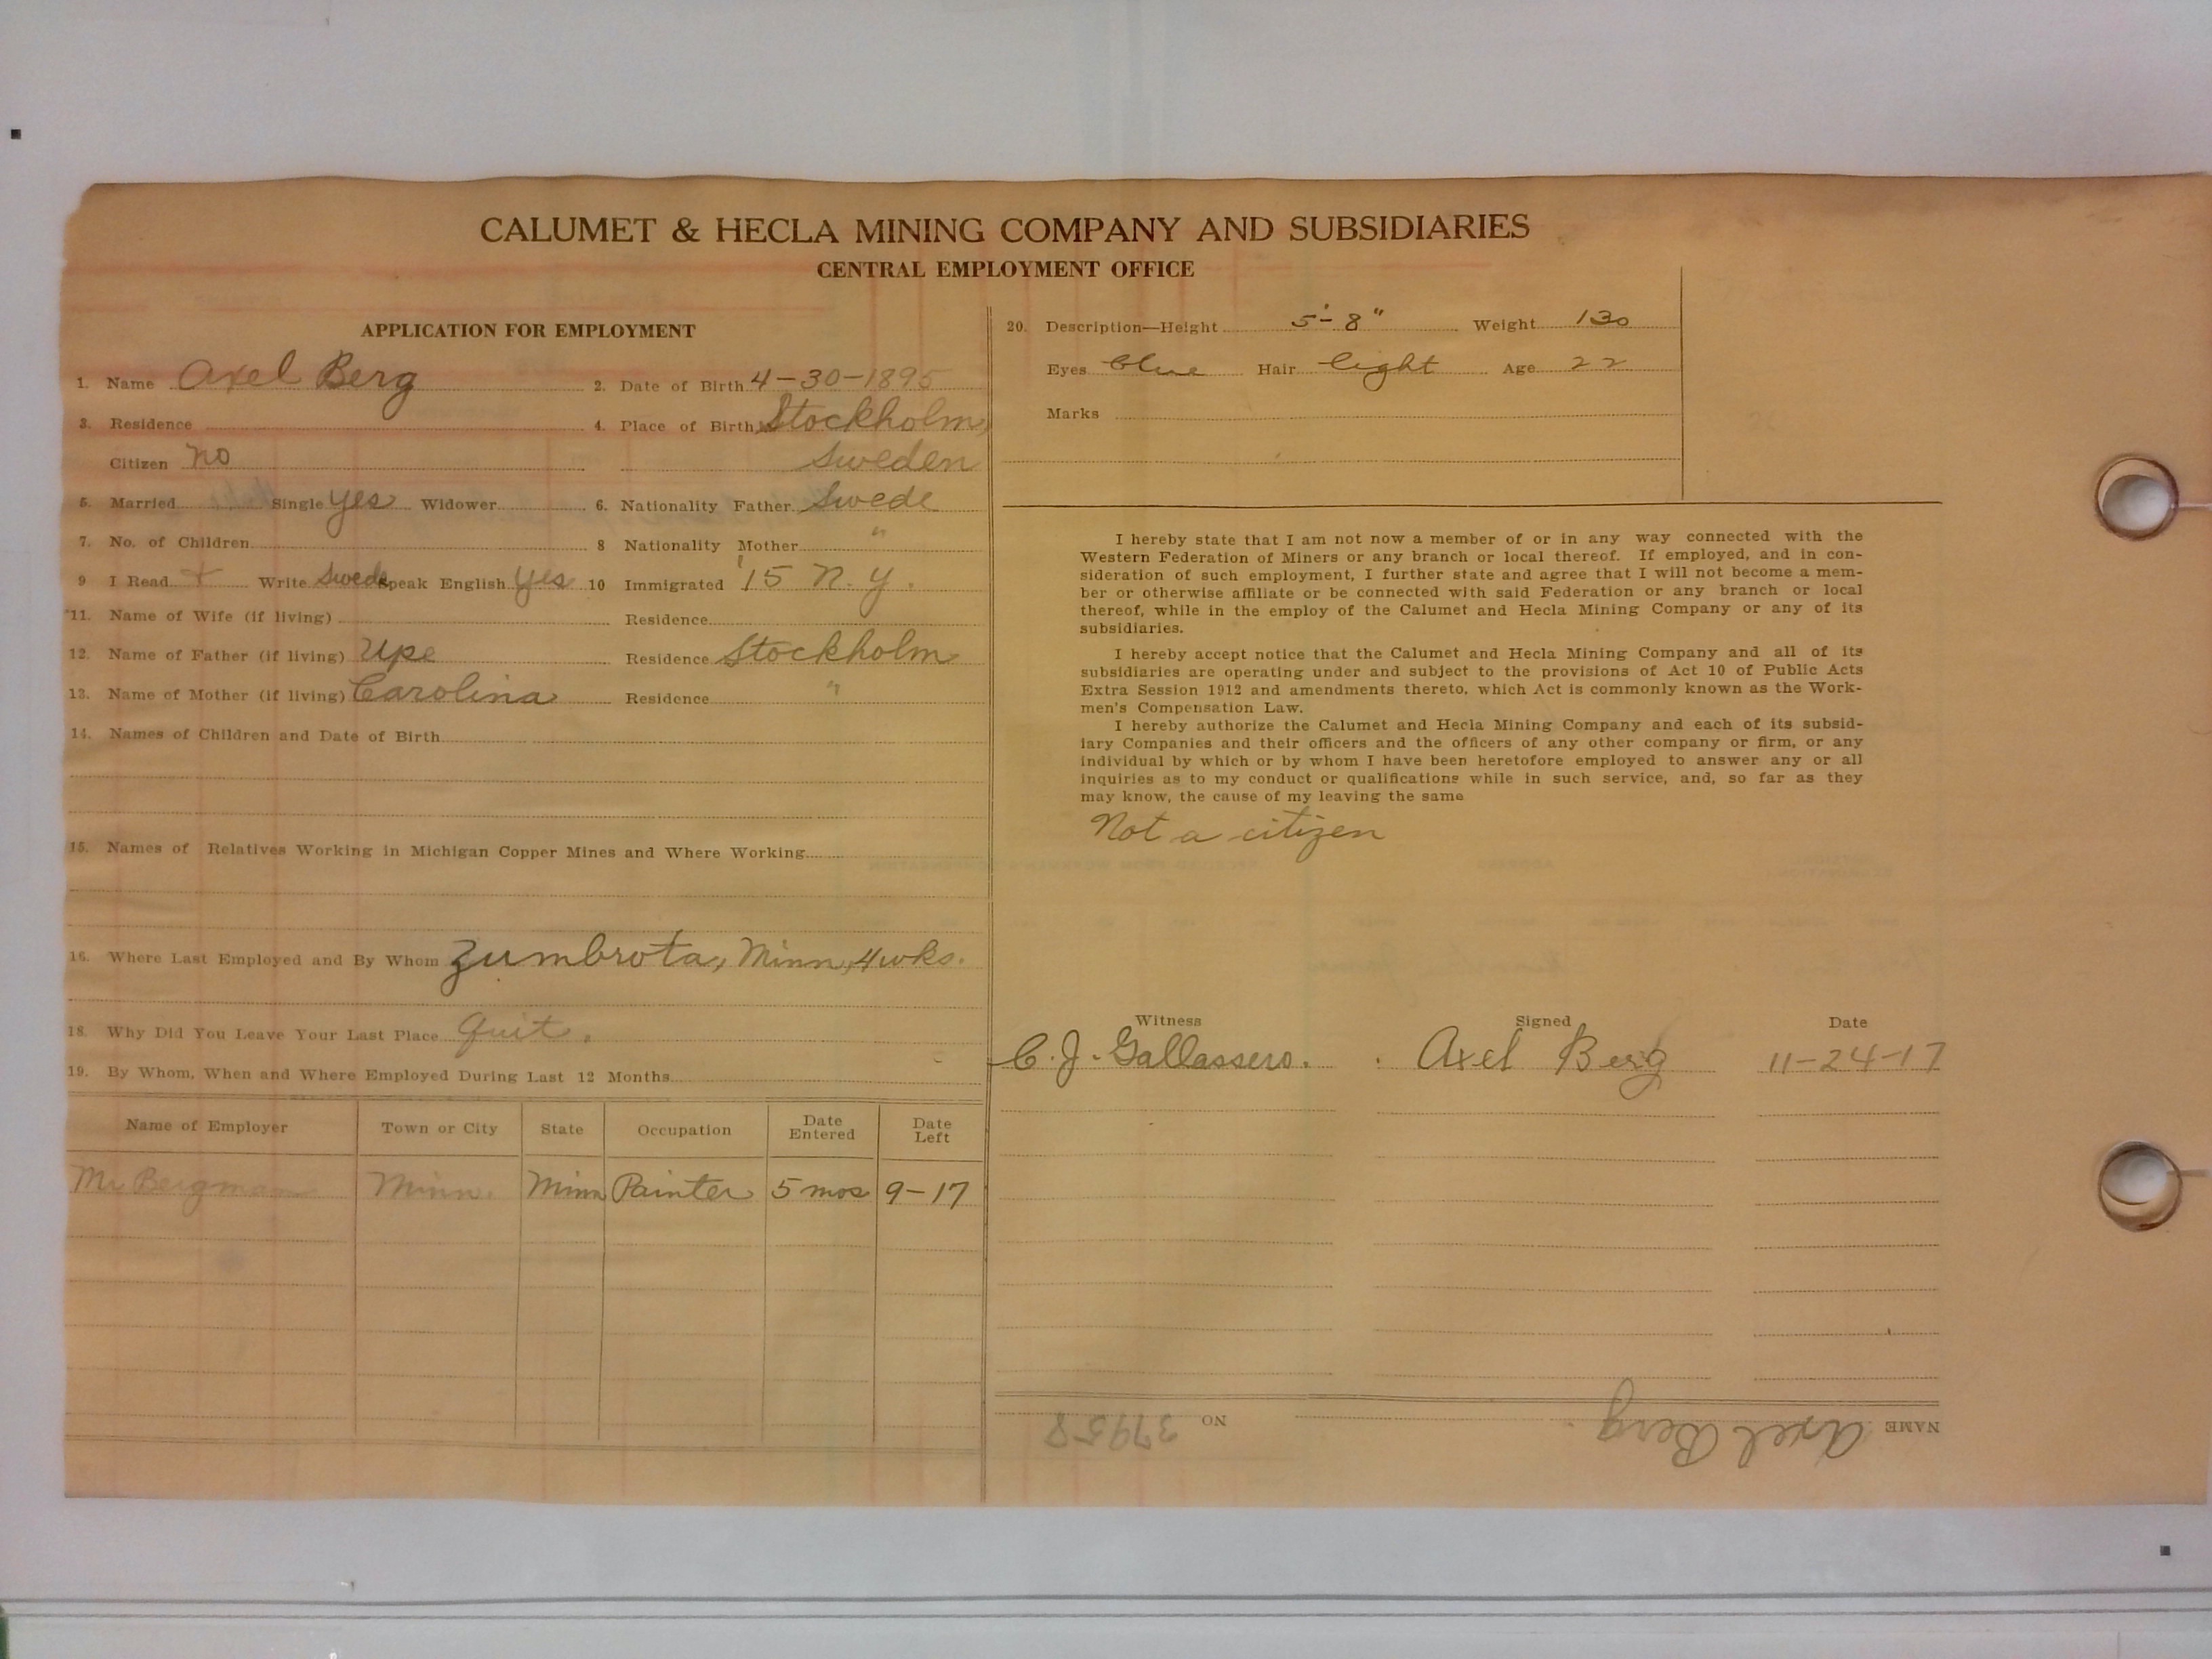 CALUMET & HECLA MINING COMPANY AND SUBSIDIARIES
CENTRAL EMPLOYMENT OFFICE
APPLICATION FOR EMPLOYMENT
1. Name Axel Berg 2. Date of Birth 4-30-1895
3. Residence 4. Place of Birth Stockholm,
Citizen no Sweden
5. Married Single yes Widower 6. Nationality Father Swede
7. No. of Children 8 Nationality Mother "
9 I Read + Write Swede Speak English yes 10 Immigrated '15 N.Y.
11. Name of Wife (if living) Residence
12. Name of Father (if living) Upe Residence Stockholm
13. Name of Mother (if living) Carolina Residence "
14. Names of Children and Date of Birth
15. Names of Relatives Working in Michigan Copper Mines and Where Working
16. Where Last Employed and By Whom Zumbrota, Minn, 4 wks.
18. Why Did You Leave Your Last Place Quit.
19. By Whom, When and Where Employed During Last 12 Months
Name of Employer Town or City State Occupation Date Entered Date Left
Mr Bergman Minn. Minn Painter 5 mos 9-17
20. Description—Height 5'-8" Weight 130
Eyes blue Hair light Age 22
Marks
I hereby state that I am not now a member of or in any way connected with the
Western Federation of Miners or any branch or local thereof. If employed, and in con-
sideration of such employment, I further state and agree that I will not become a mem-
ber or otherwise affiliate or be connected with said Federation or any branch or local
thereof, while in the employ of the Calumet and Hecla Mining Company or any of its
subsidiaries.
I hereby accept notice that the Calumet and Hecla Mining Company and all of its
subsidiaries are operating under and subject to the provisions of Act 10 of Public Acts
Extra Session 1912 and amendments thereto, which Act is commonly known as the Work-
men's Compensation Law.
I hereby authorize the Calumet and Hecla Mining Company and each of its subsid-
iary Companies and their officers and the officers of any other company or firm, or any
individual by which or by whom I have been heretofore employed to answer any or all
inquiries as to my conduct or qualifications while in such service, and, so far as they
may know, the cause of my leaving the same
Not a citizen
Witness Signed Date
C. J. Gallassero. Axel Berg 11-24-17
NAME Axel Berg. NO 37958